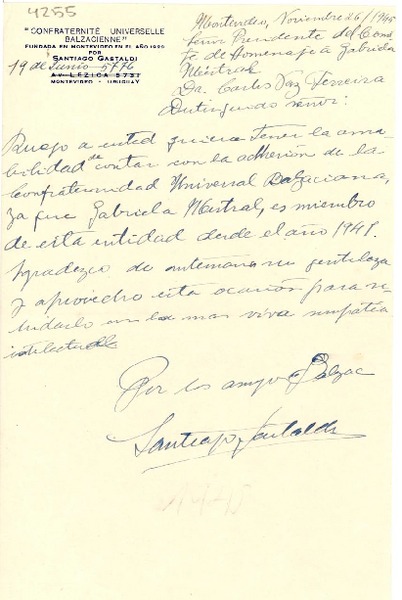 4255
"CONFRATERNITÉ UNIVERSELLE
BALZACIENNE"
FUNDADA EN MONTEVIDEO EN EL AÑO 1929
POR
SANTIAGO GASTALDI
19 de Junio 5774
AV. LEZICA 5737
MONTEVIDEO - URUGUAY
Montevideo, Noviembre 26/1945
Señor Presidente del Comi-
té de Homenaje a Gabriela
Mistral
Dr. Carlos Vaz Ferreira
Distinguido señor:
Ruego a usted quiera tener la ama-
bilidad de contar con la adhesión de la
Confraternidad Universal Balzaciana,
ya que Gabriela Mistral, es miembro
de esta entidad desde el año 1941.
Agradezco de antemano su gentileza
y aprovecho esta ocasión para sa-
ludarlo con la mas viva simpatía
intelectual
Por los amigos Balzac
Santiago Gastaldi